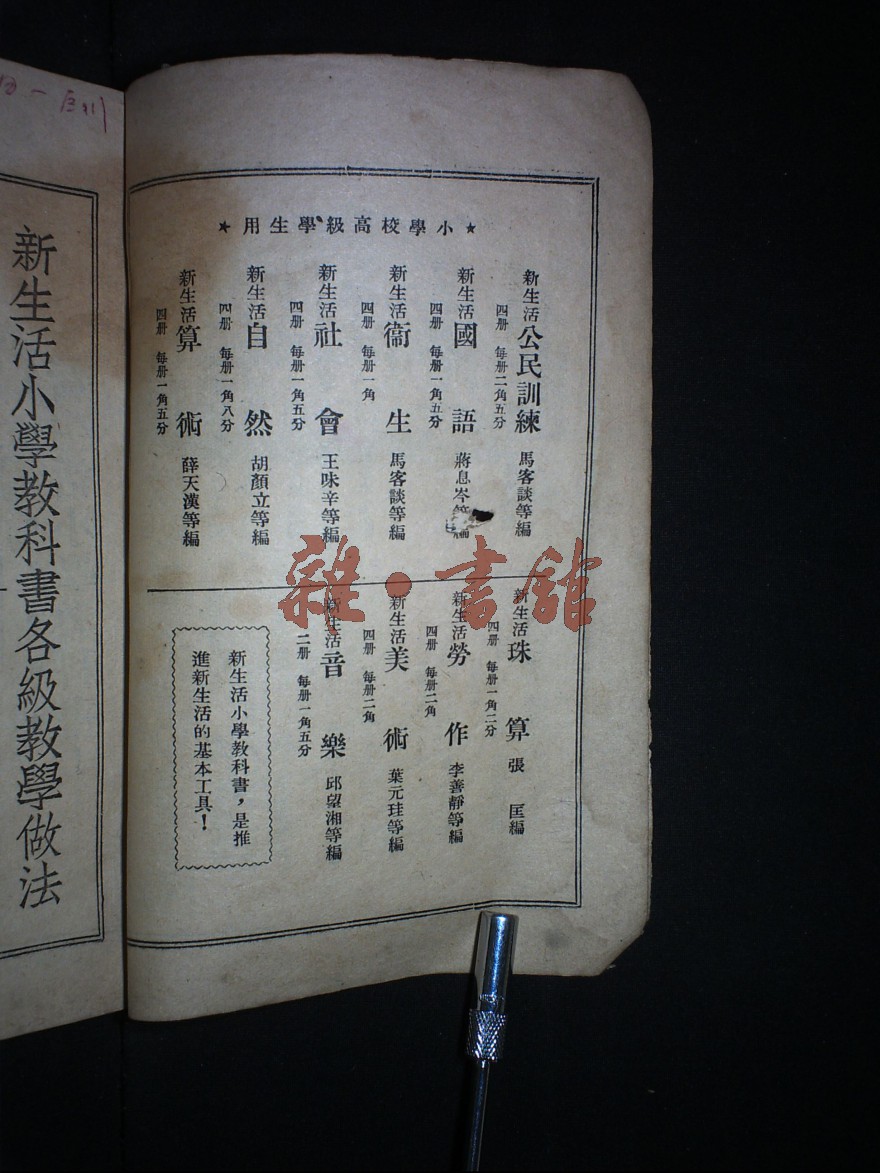 ★小學校高級學生用★
新生活公民訓練 馬客談等編
四册 每册二角五分
新生活國語 蔣息岑等編
四册 每册一角五分
新生活衞生 馬客談等編
四册 每册一角
新生活社會 王味辛等編
四册 每册一角五分
新生活自然 胡顏立等編
四册 每册一角八分
新生活算術 薛天漢等編
四册 每册一角五分
新生活珠算 張匡編
四册 每册一角二分
新生活勞作 李善靜等編
四册 每册二角
新生活美術 葉元珪等編
四册 每册二角
新生活音樂 邱望湘等編
二册 每册一角五分
新生活小學教科書，是推
進新生活的基本工具！
新生活小學教科書各級教學做法
雜·書館